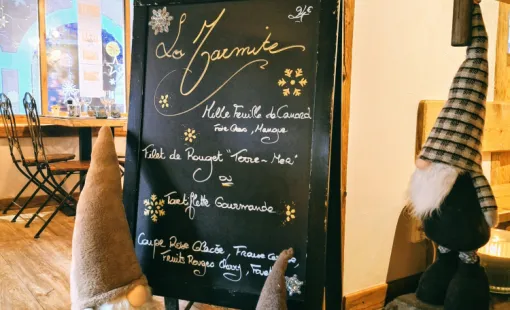 24€
La Marmite
Mille Feuille de Canard
Foie Gras, Mangue
Filet de Rouget "Terre-Mer"
ou
Tartiflette Gourmande
Coupe Rose Glacée,
Fruits Rouges